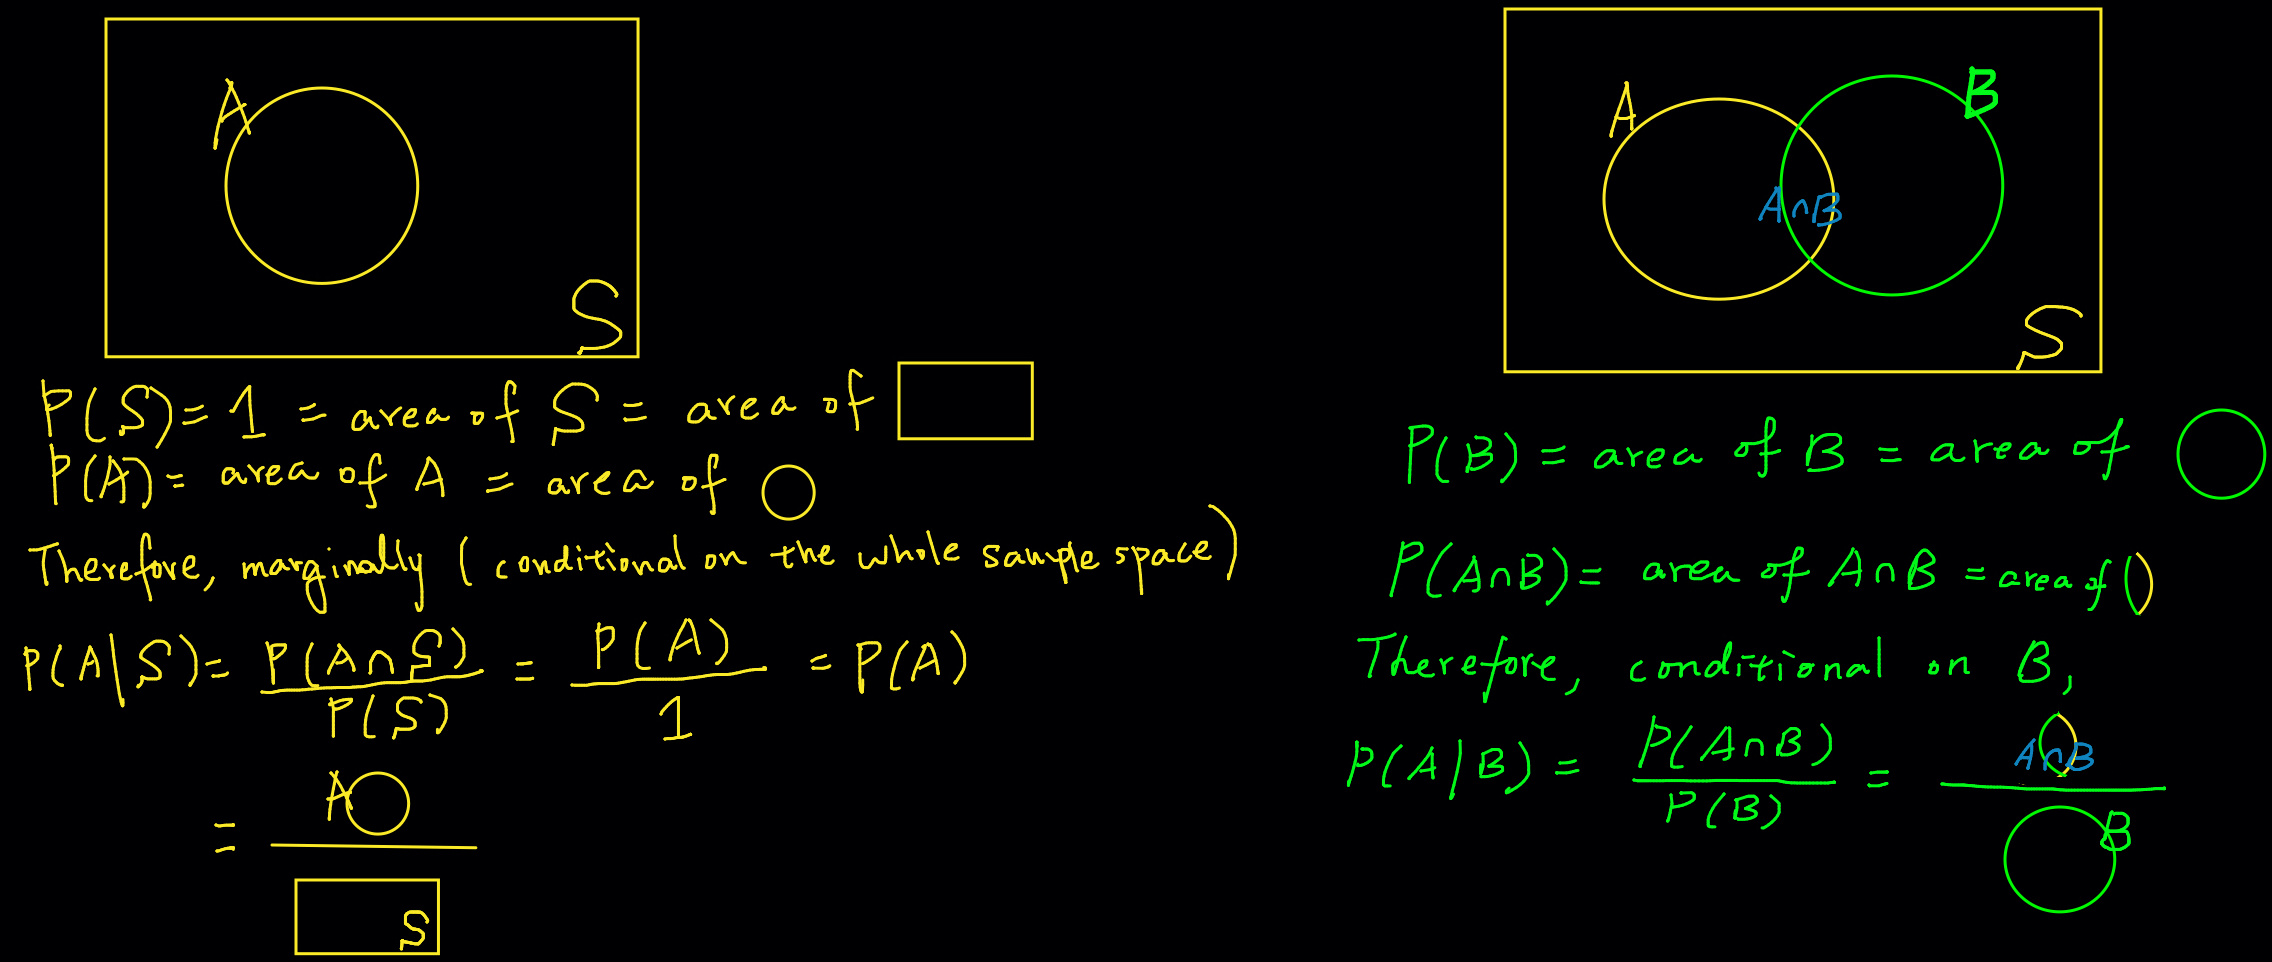 A
S
P(S) = 1 = area of S = area of
P(A) = area of A = area of
Therefore, marginally (conditional on the whole sample space)
P(A|S) = P(A∩S) / P(S) = P(A) / 1 = P(A)
= A / S
A B
A∩B
S
P(B) = area of B = area of
P(A∩B) = area of A∩B = area of
Therefore, conditional on B,
P(A|B) = P(A∩B) / P(B) = A∩B / B